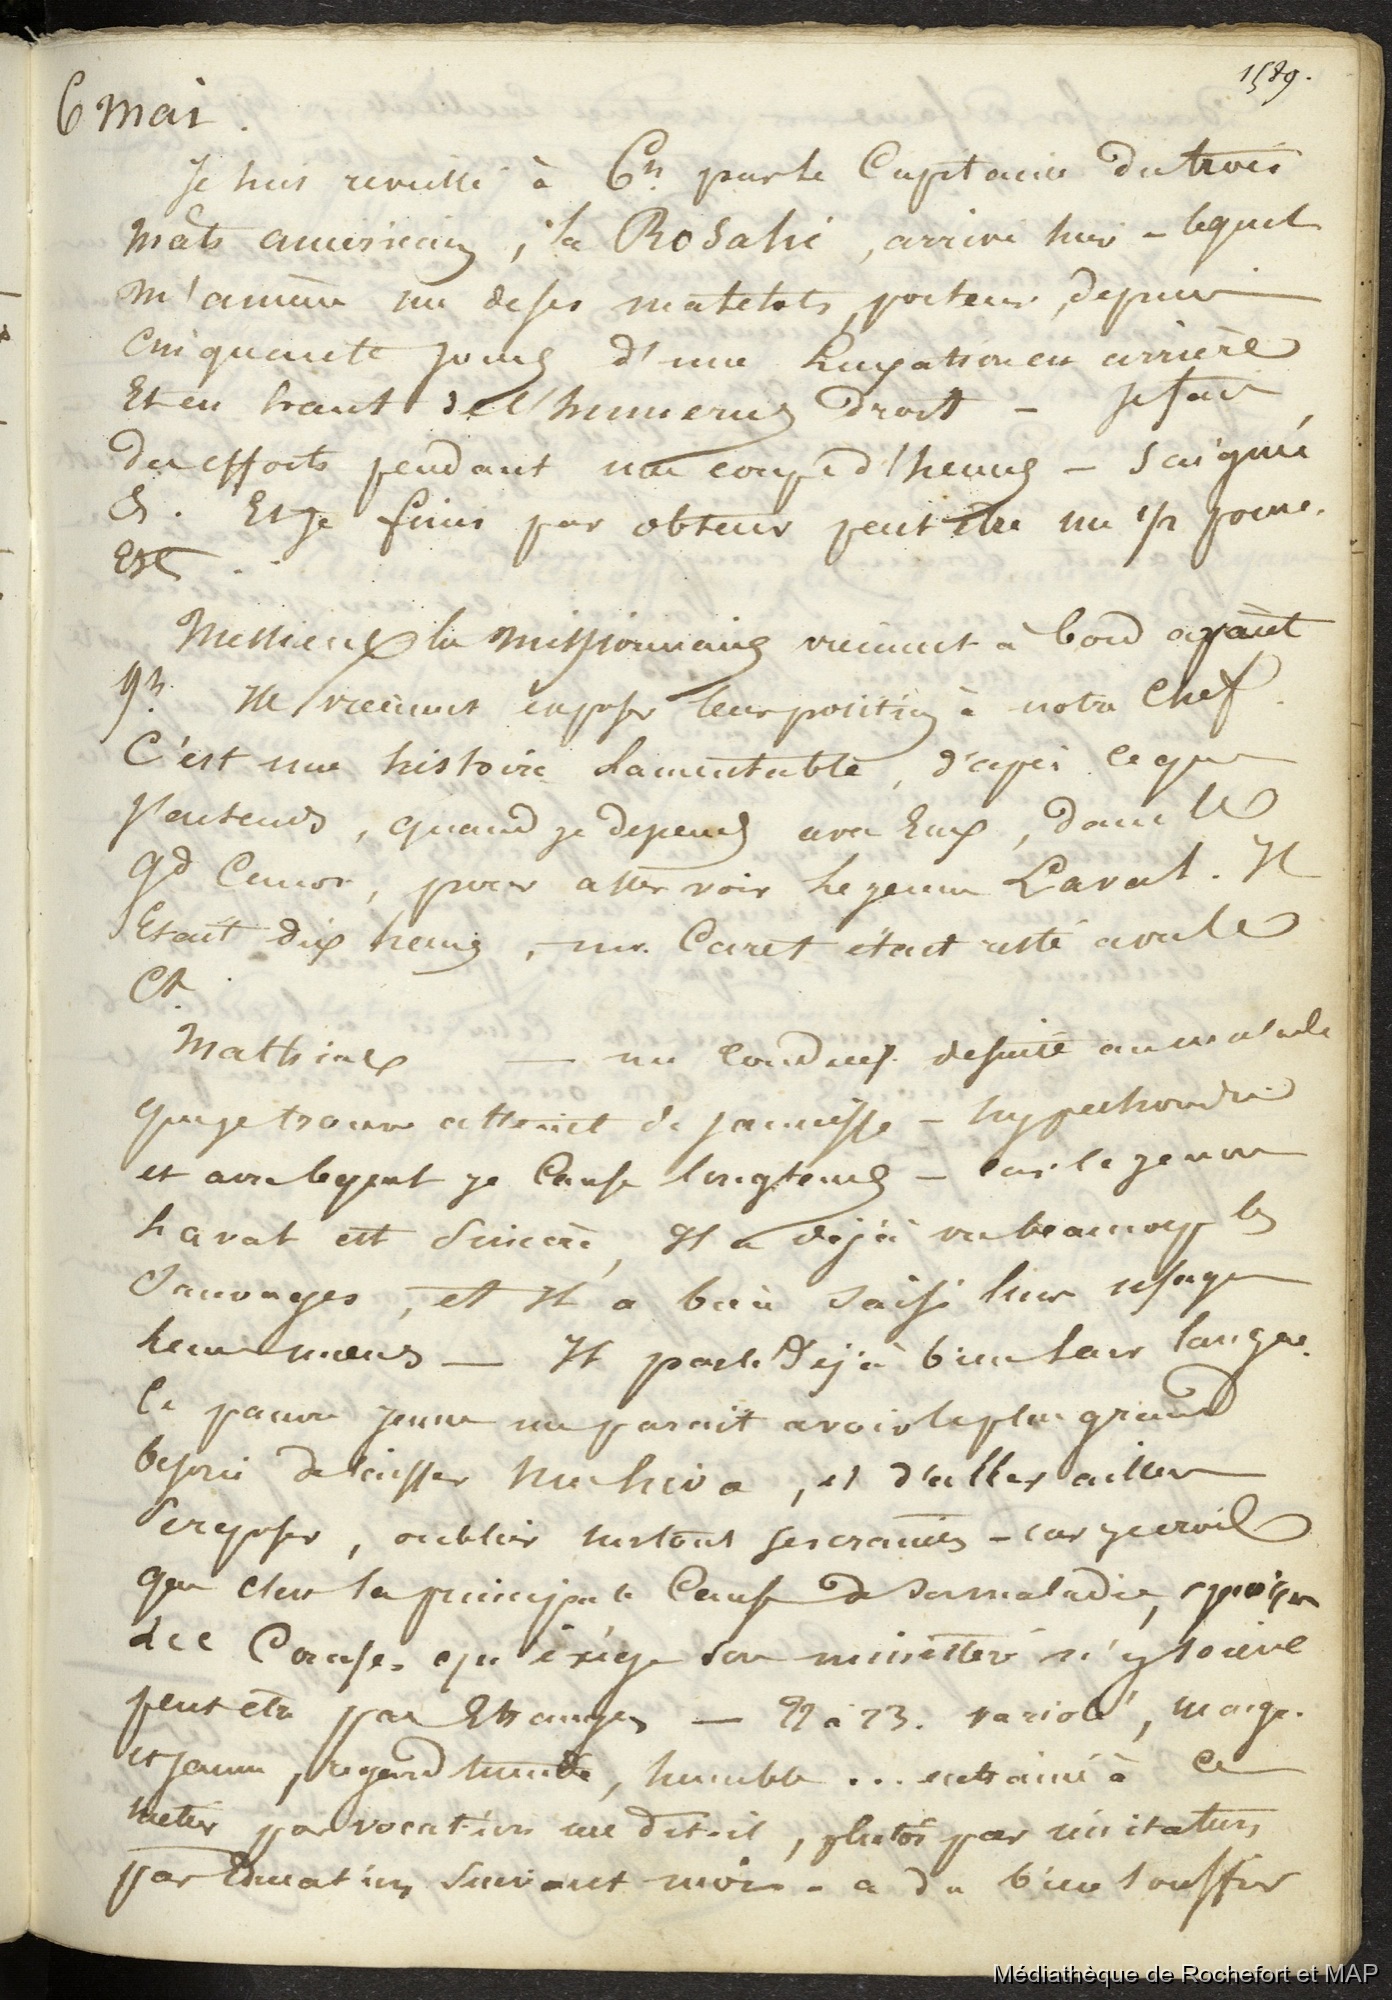 1589.
6 mai.
Je suis reveillé à 6h. par le Capitaine du trois
mâts americain, la Rosalie, arrivé hier - lequel
m'amène un de ses matelots, porteur, depuis
cinquante jours d'une luxation en arrière
Et en haut de l'humerus droit - Je fais
des efforts pendant une coupe d'heures - Saignée
&. Et je finis par obtenir peut être un 1/2 pouce.
Etc.
Messieurs les missionnaires viennent à bord avant
9h. Ils viennent exposer leur position à notre Chef.
C'est une histoire lamentable, d'après ce que
j'entends, quand je descends avec Eux, dans le
gd Canot, pour aller voir le jeune Laval. Il
Etait dix heures, mr. Caret était resté avec le
Ct.
Mathias — me conduis. de suite au malade
que je trouve atteint de jaunisse - hypochondrie
et avec lequel je cause longtems - car le jeune
Laval est sincère, Il a déjà vu beaucoup les
Sauvages, et Il a bien saisi leur usages
leurs moeurs — Il parle Déjà bien leur langue.
Ce pauvre jeune me parait avoir le plus grand
besoin de laisser Nuhiva, et d'aller ailleurs
se reposer, oublier surtout ses craintes - car je crois
que c'est la principale Cause de sa maladie, quoique
des Courses qu'exige son ministère n'y soient
peut être pas Etranges — 22 à 23. variolé, maigre.
et jaune, regard timide, humble ... entrainé à ce
métier par vocation me dit-il, plutôt par imitation,
par Education suivant moi - a du bien souffrir
Médiathèque de Rochefort et MAP